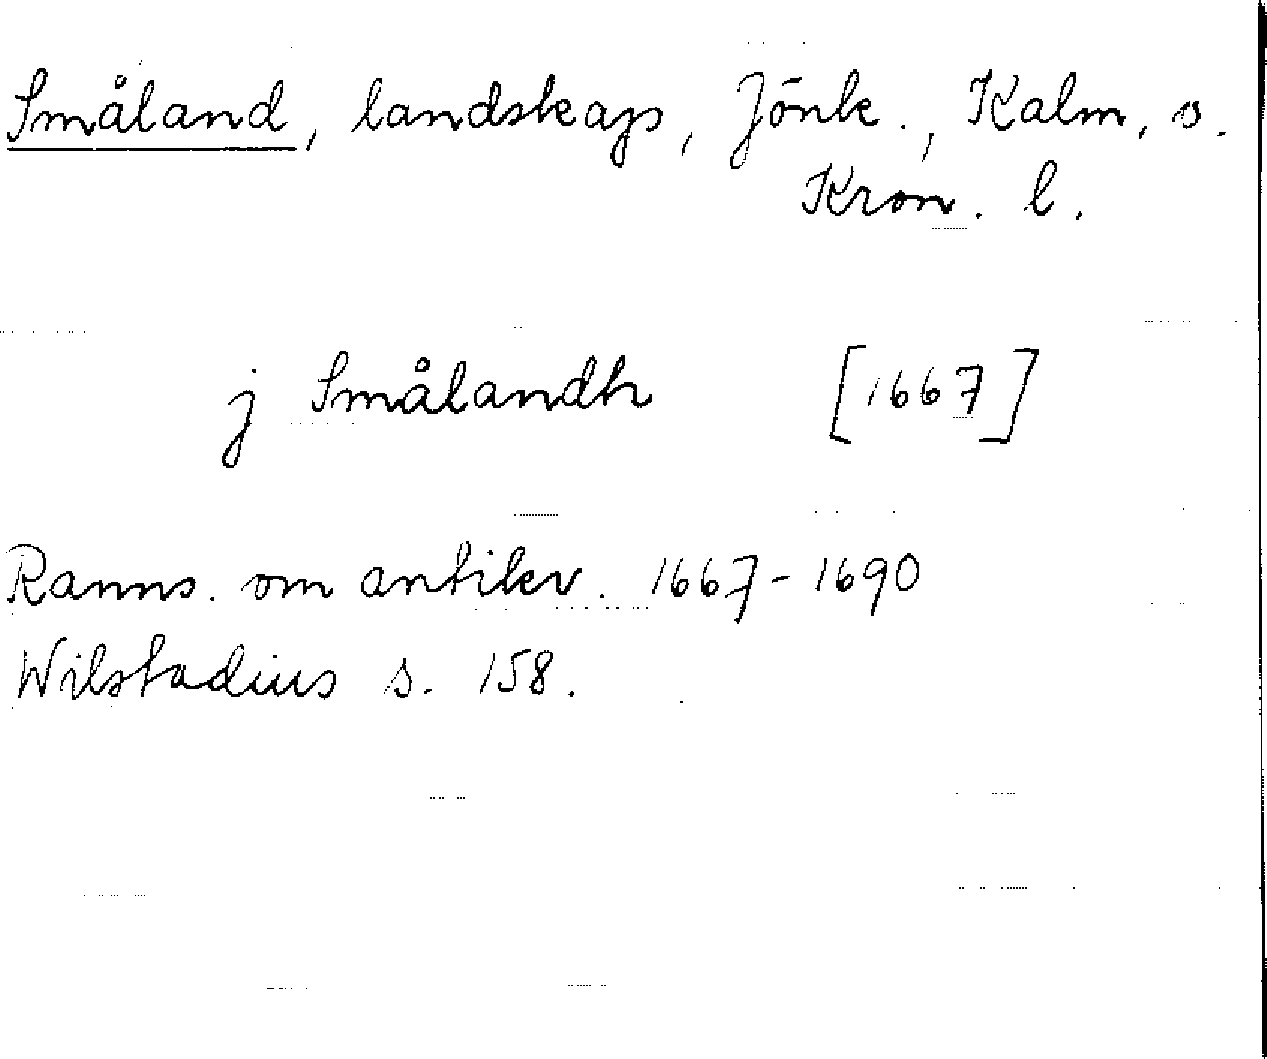 Småland, landskap, Jönk., Kalm. o.
Kron. l.
j Smålandh [1667]
Ranns. om antikv. 1667-1690
Wilstadius s. 158.